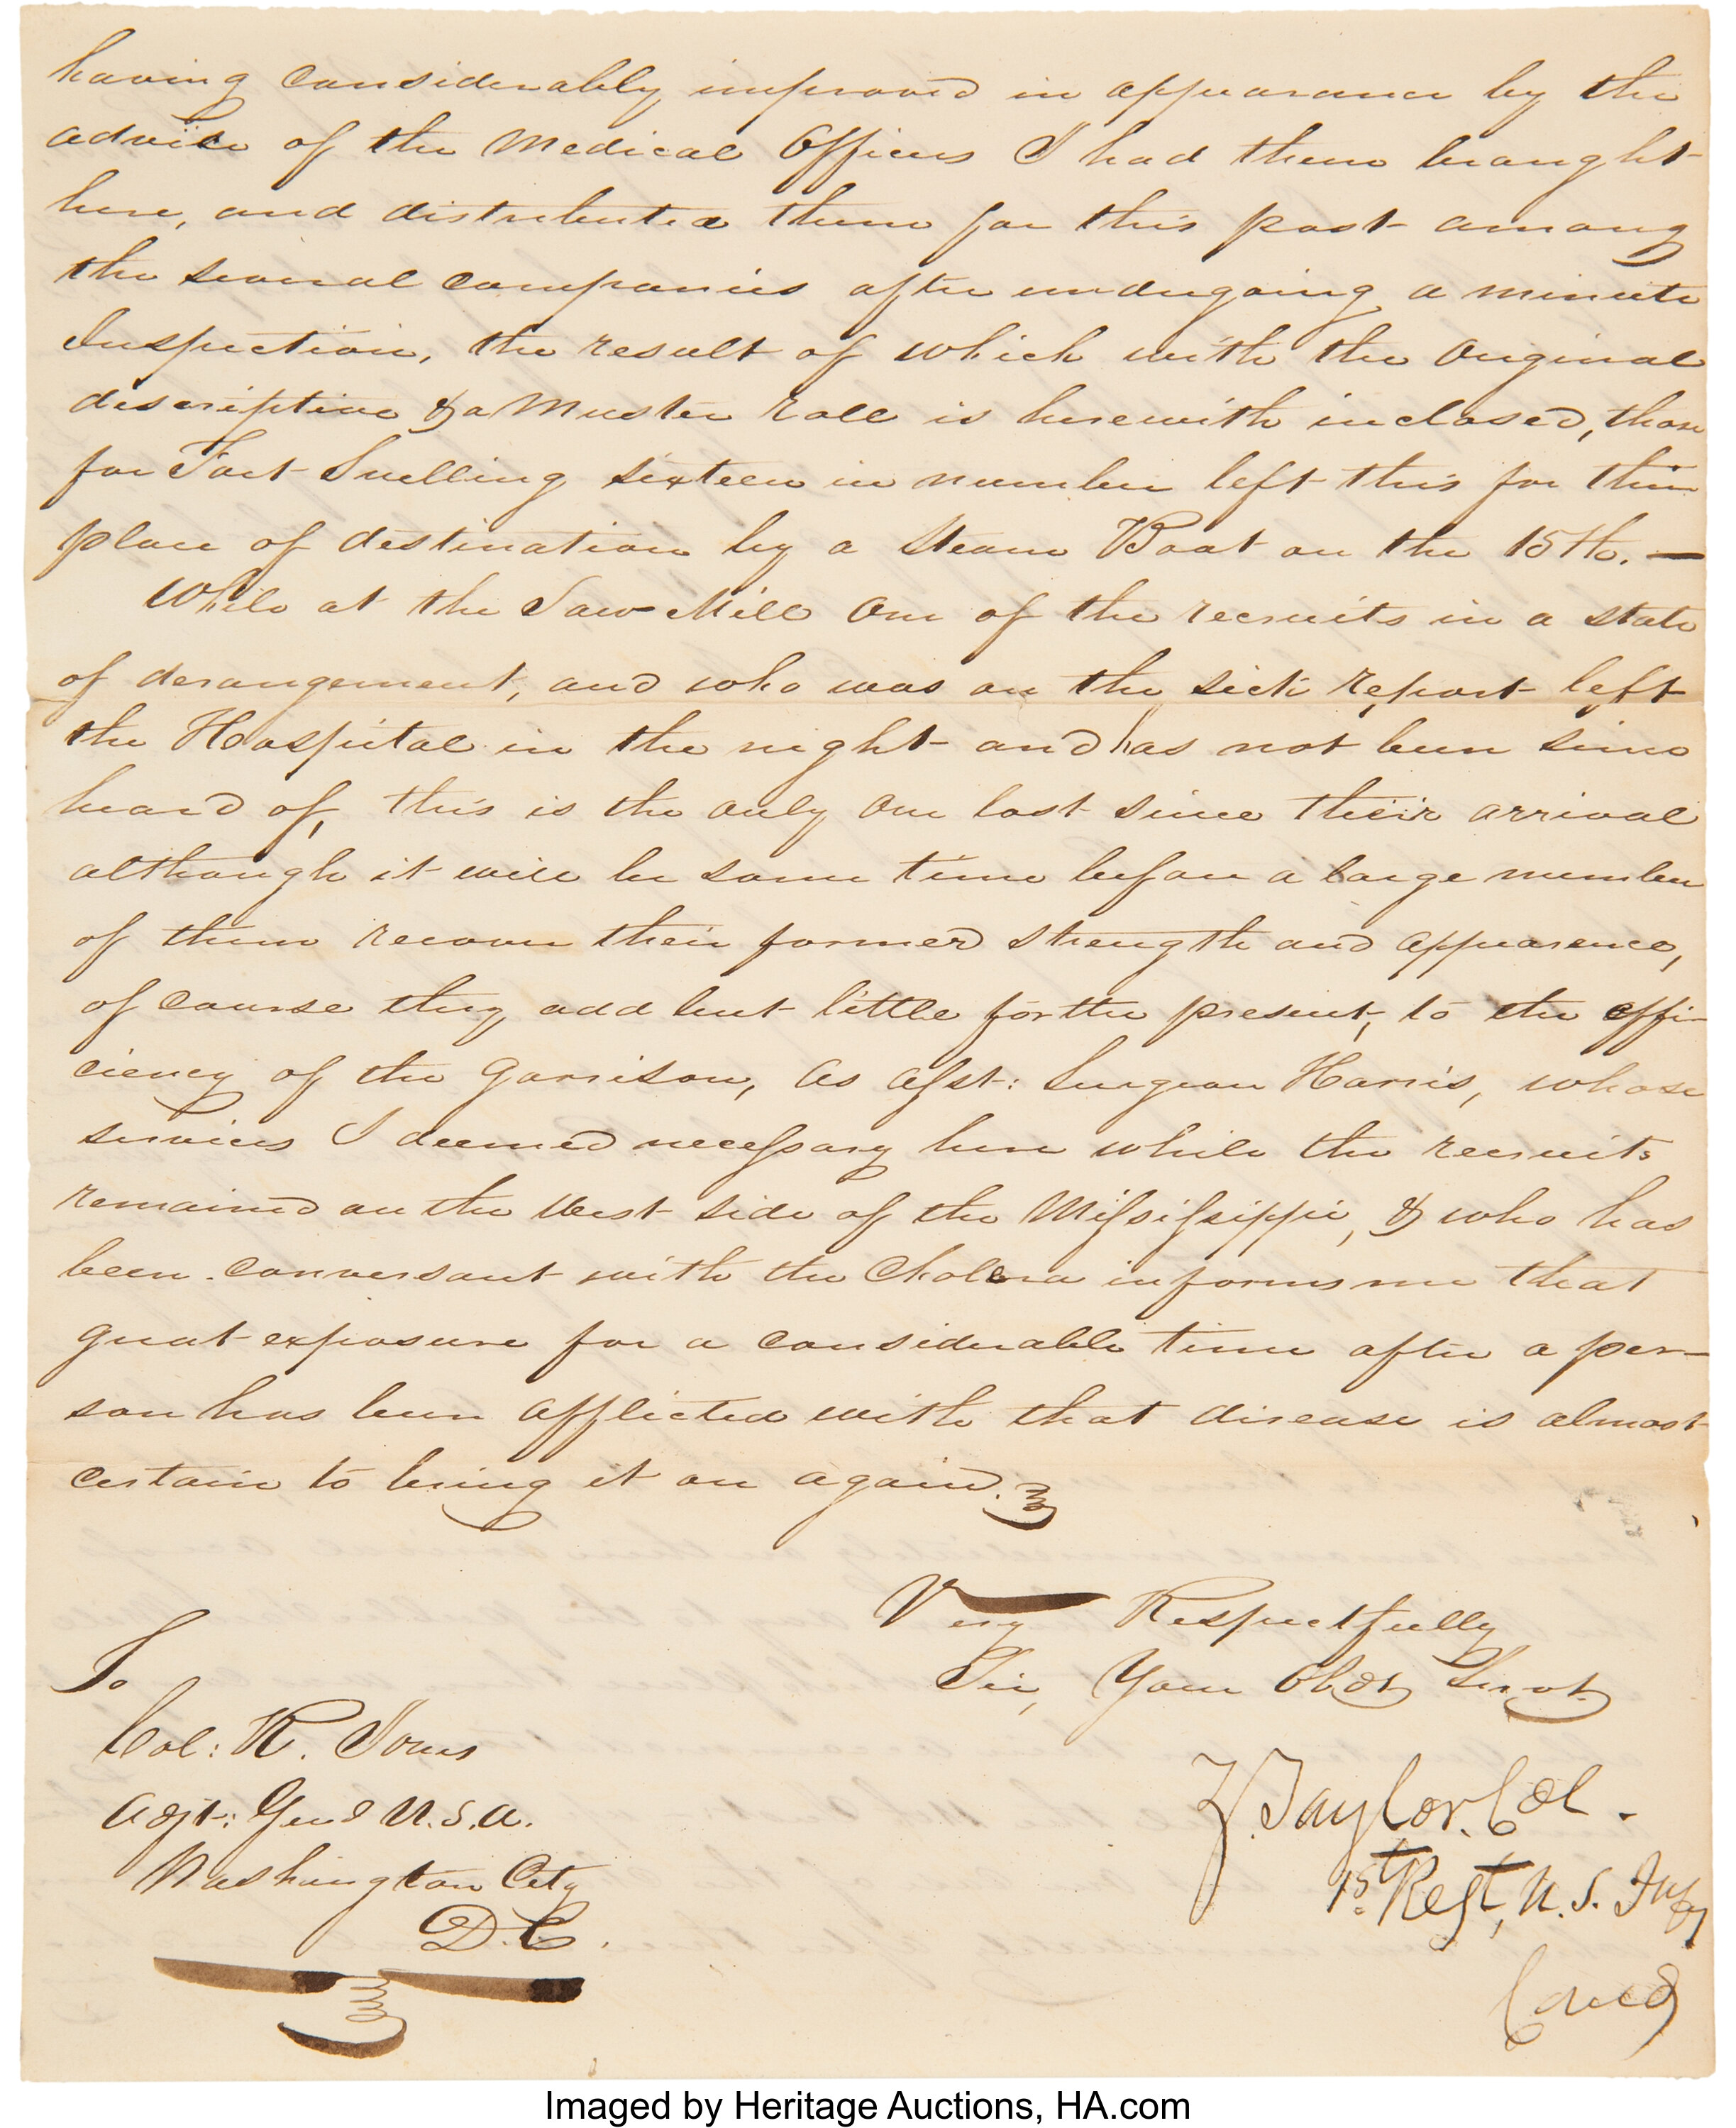 having considerably improved in appearance by the
advice of the Medical Officers I had them brought
here, and distributed them for this post among
the several companies after undergoing a minute
Inspection, the result of which with the Original
descriptive & a Muster roll is herewith inclosed, those
for Fort Snelling sixteen in number left this for their
place of destination by a Steam Boat on the 15th. —
While at the Saw Mill One of the recruits in a state
of derangement, and who was on the sick report left
the Hospital in the night and has not been since
heard of, this is the only One lost since their arrival
although it will be some time before a large number
of them recover their former strength and appearence,
of course they add but little for the present, to the effi-
ciency of the Garrison, As Asst: Surgeon Harris, whose
services I deemed necessary here while the recruits
remained on the West side of the Mississippi, & who has
been conversant with the Cholera informs me that
great exposure for a considerable time after a per-
son has been afflicted with that disease is almost
certain to bring it on again.
Very Respectfully
Sir, Your Obdt Servt
To
Col: R. Jones
Adjt: Genl U.S.A.
Washington City
D.C.
Z. Taylor. Col.
1st Regt, U. S. Infy
Comd
Imaged by Heritage Auctions, HA.com